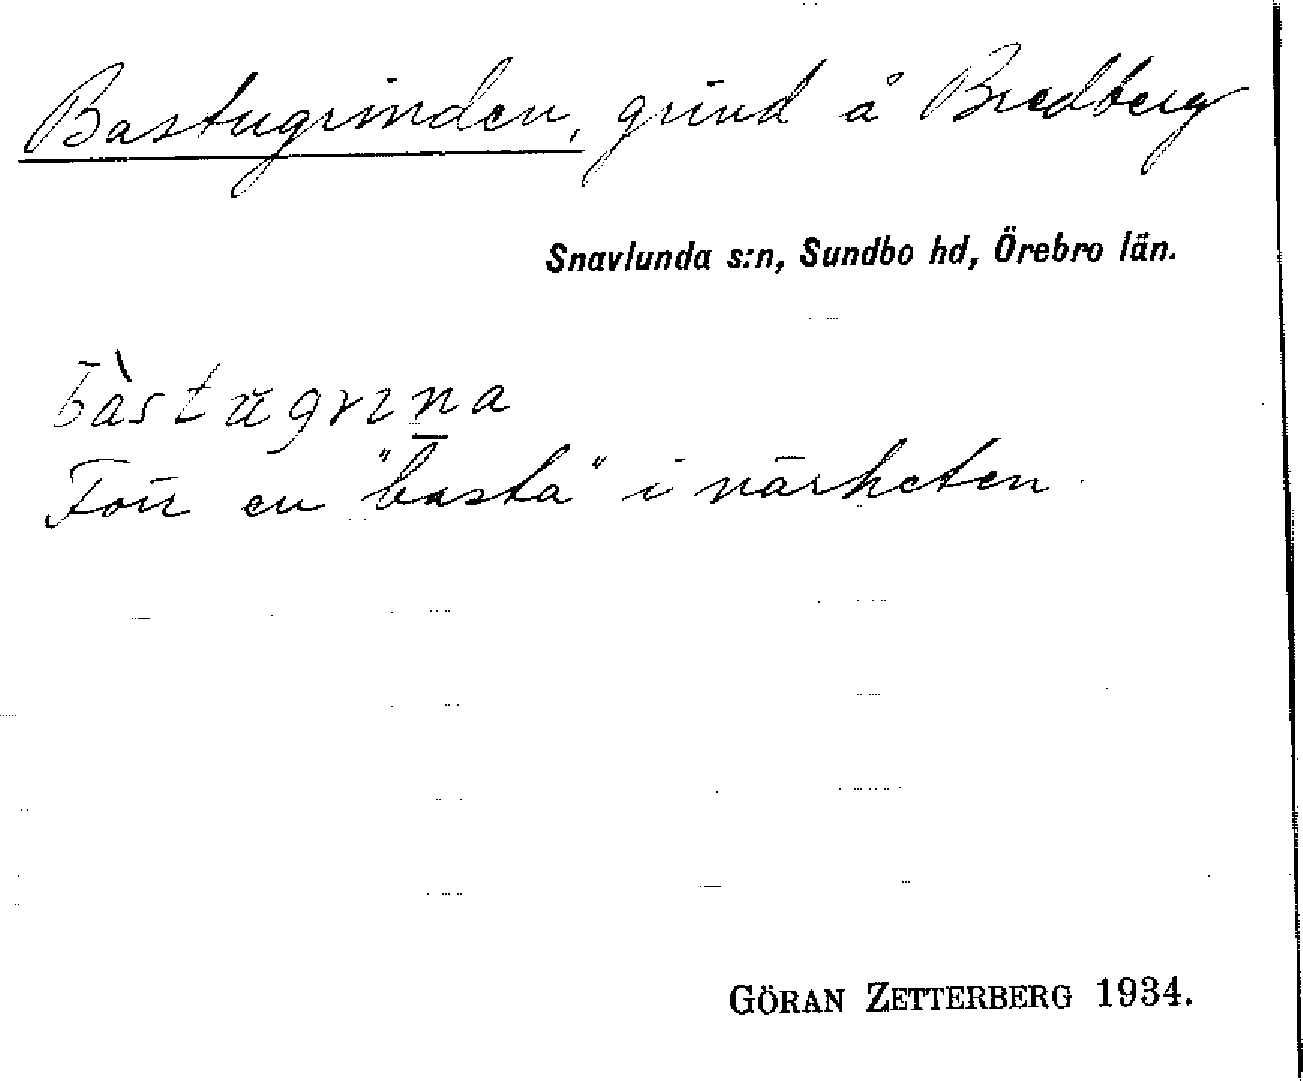 Bastugrinden, grind å Bredberg
Snavlunda s:n, Sundbo hd, Örebro län.
bàstugrina
För en "basta" i närheten
GÖRAN ZETTERBERG 1934.